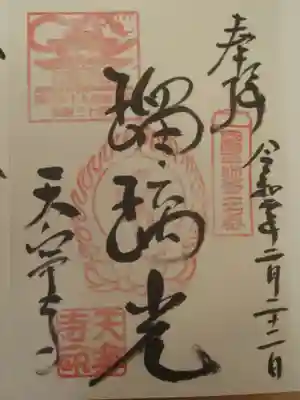 奉拝
令和二年二月二十二日
瑠璃光
天寧寺
天寧
寺印